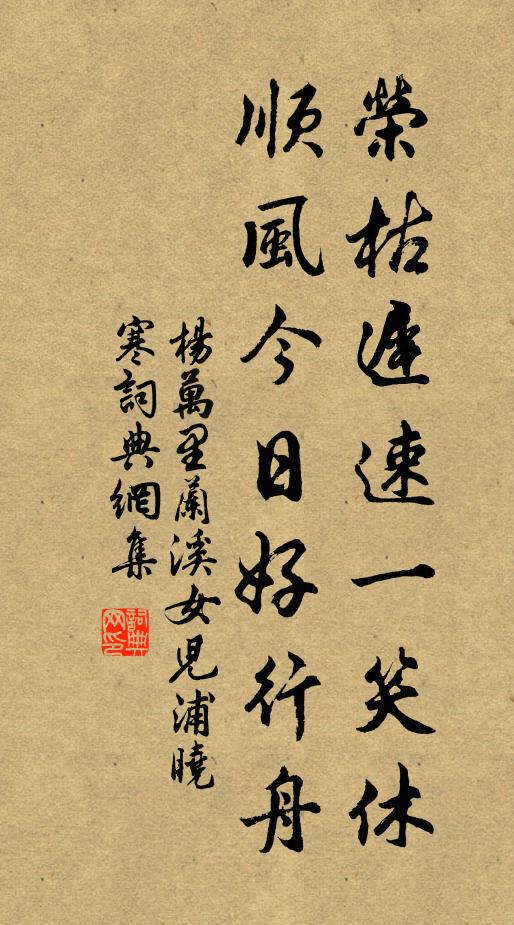 榮枯遲速一笑休
順風今日好行舟
楊萬里蘭溪女兒浦曉
寒詞典網集
詞典網印